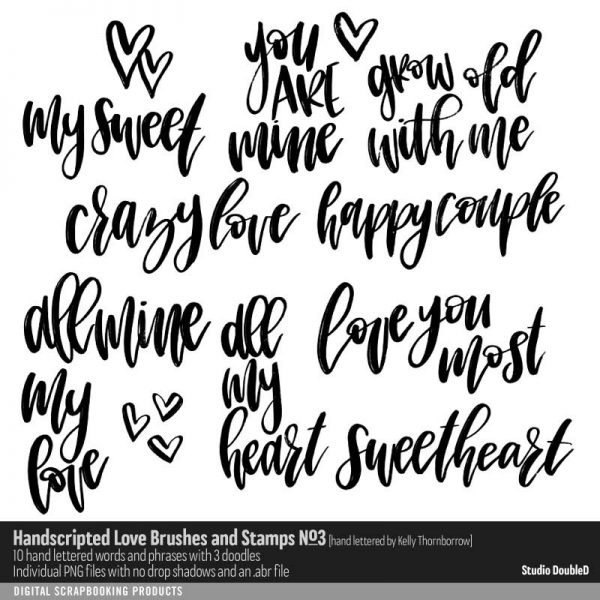 my sweet
you
ARE
mine
grow old
with me
crazy love
happy couple
all mine
my
love
all
my
heart
love you
most
sweetheart
Handscripted Love Brushes and Stamps №3 [hand lettered by Kelly Thornborrow]
10 hand lettered words and phrases with 3 doodles
Individual PNG files with no drop shadows and an .abr file
Studio DoubleD
DIGITAL SCRAPBOOKING PRODUCTS